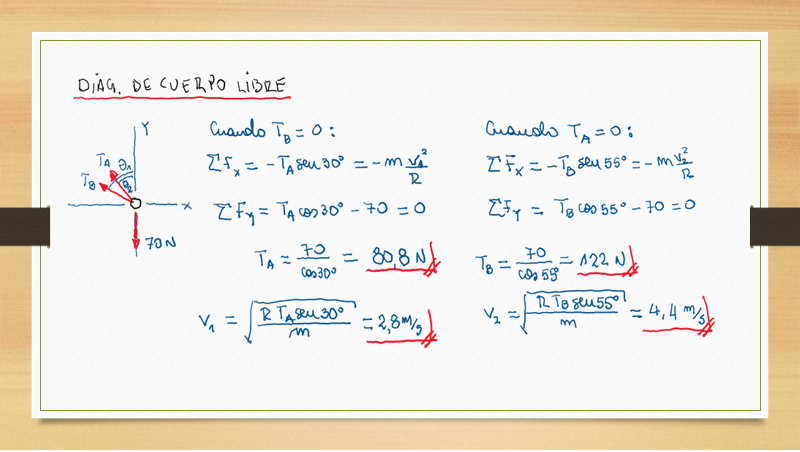 DIAG. DE CUERPO LIBRE
Y
T_A θ₁
T_B θ₂
x
70 N
Cuando T_B = 0 :
ΣF_x = -T_A sen 30° = -m v₁²/R
ΣF_y = T_A cos 30° - 70 = 0
T_A = 70/cos 30° = 80,8 N
v₁ = √(R T_A sen 30°/m) = 2,8 m/s
Cuando T_A = 0 :
ΣF_x = -T_B sen 55° = -m v₂²/R
ΣF_y = T_B cos 55° - 70 = 0
T_B = 70/cos 55° = 122 N
v₂ = √(R T_B sen 55°/m) = 4,4 m/s